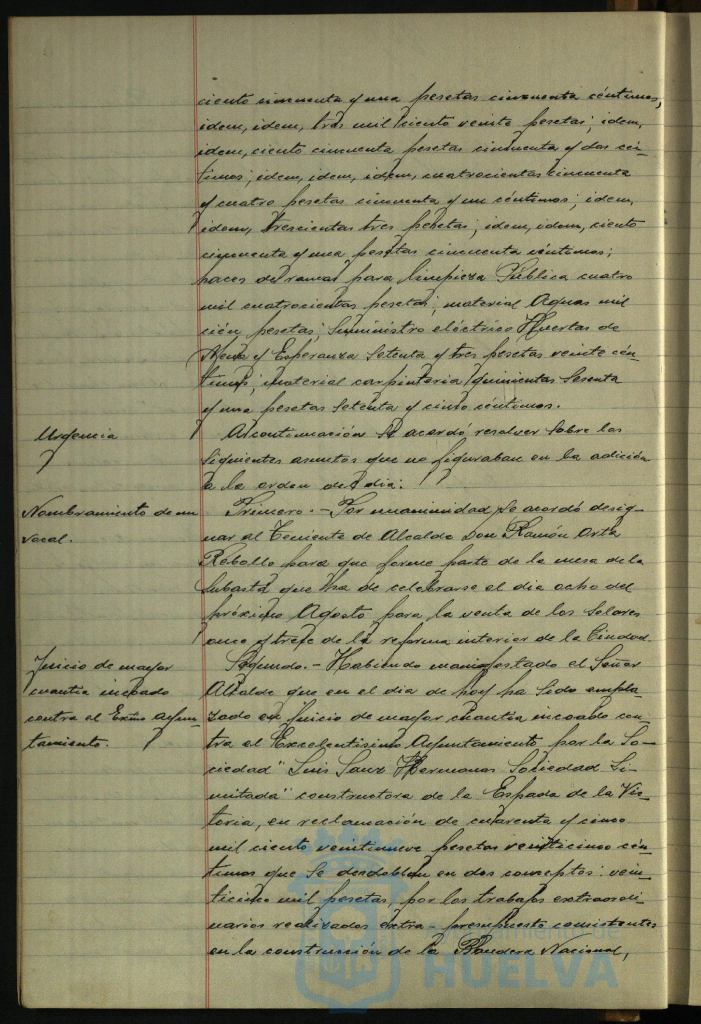 ciento cincuenta y una pesetas cincuenta céntimos,
idem, idem, tres mil ciento veinte pesetas; idem,
idem, ciento cincuenta pesetas cincuenta y dos cén-
timos; idem, idem, idem, cuatrocientas cincuenta
y cuatro pesetas cincuenta y un céntimos; idem,
idem, trescientas tres pesetas; idem, idem, ciento
cincuenta y una pesetas cincuenta céntimos;
haces de ramas para limpieza Pública cuatro
mil cuatrocientas pesetas; material Aguas mil
cién pesetas; Suministro eléctrico Huertas de
Mena y Esperanza Setenta y tres pesetas veinte cén-
timos; material carpintería quinientas Sesenta
y una pesetas Setenta y cinco céntimos.
Urgencia
A continuación Se acordó resolver Sobre los
Siguientes asuntos que no figuraban en la adición
a la orden del dia:
Nombramiento de un
vocal.
Primero.- Por unanimidad Se acordó desig-
nar al Teniente de Alcalde Don Ramón Orta
Rebollo para que forme parte de la mesa de la
Subasta que ha de celebrarse el dia ocho del
próximo Agosto para la venta de los Solares
once y trece de la reforma interior de la Ciudad.
Juicio de mayor
cuantia incoado
contra el Excmo Ayun-
tamiento.
Segundo.- Habiendo manifestado el Señor
Alcalde que en el dia de hoy ha Sido empla-
zado en Juicio de mayor cuantia incoado con-
tra el Excelentisimo Ayuntamiento por la So-
ciedad "Luis Sanz Hermanos Sociedad Li-
mitada" constructora de la Espada de la Vic-
toria, en reclamación de cuarenta y cinco
mil ciento veintinueve pesetas veinticinco cén-
timos que Se desdoblan en dos conceptos: vein-
ticinco mil pesetas, por los trabajos extraordi-
narios realizados extra-presupuesto consistentes
en la construcción de la Bandera Nacional,
HUELVA